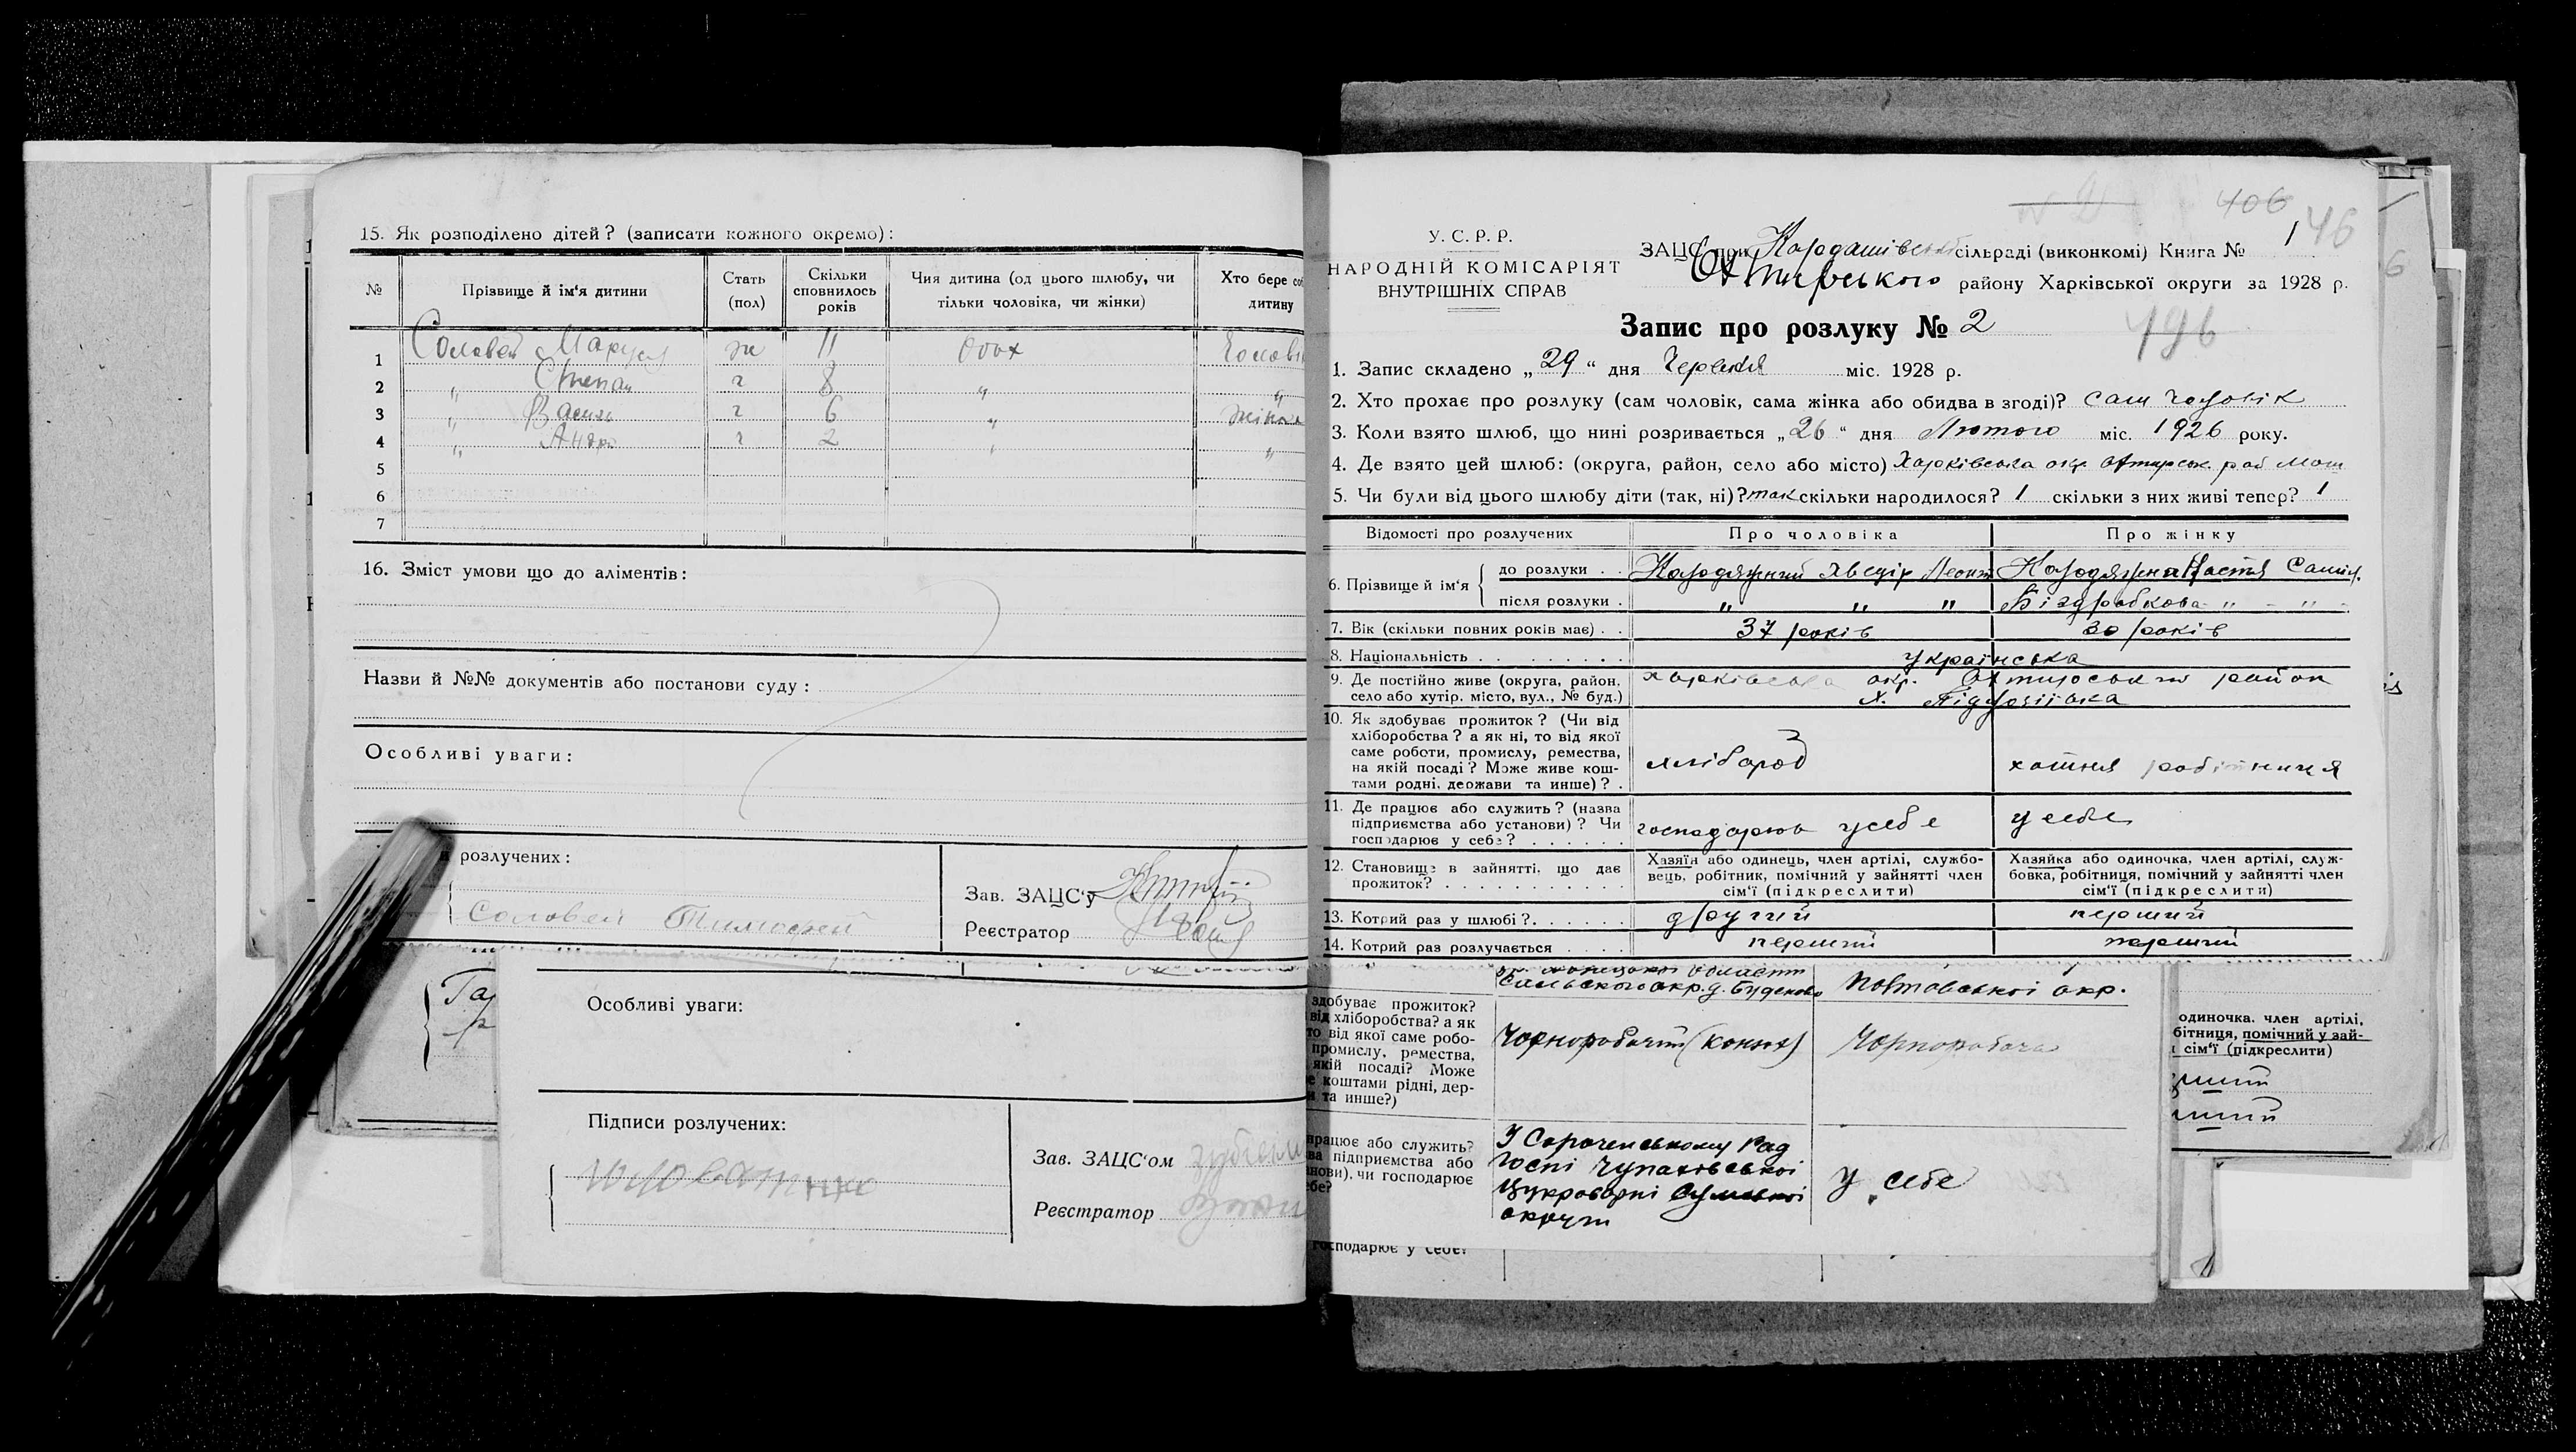 15. Як розподілено дітей? (записати кожного окремо):
№ Прізвище й ім'я дитини Стать (пол) Скільки сповнилось років Чия дитина (од цього шлюбу, чи тільки чоловіка, чи жінки) Хто бере дитину
1 Соловей Маруся ж 11 обох
2 „ Степан ч 8 „ „
3 „ Василь ч 6 „ жінка
4 „ ч 2 „ „
5
6
7
16. Зміст умови що до аліментів:
Назви й №№ документів або постанови суду:
Особливі уваги:
розлучених:
Соловей Тимофей
Зав. ЗАЦС'у
Реєстратор
Особливі уваги:
Підписи розлучених:
Зав. ЗАЦС'ом
Реєстратор
406
146
У. С. Р. Р.
НАРОДНІЙ КОМІСАРІЯТ
ВНУТРІШНІХ СПРАВ
ЗАЦС при Кардашівській сільраді (виконкомі) Книга № 1
Охтирського району Харківської округи за 1928 р.
Запис про розлуку № 2
496
1. Запис складено „29“ дня Червня міс. 1928 р.
2. Хто прохає про розлуку (сам чоловік, сама жінка або обидва в згоді)? сам чоловік
3. Коли взято шлюб, що нині розривається „26“ дня Лютого міс. 1926 року.
4. Де взято цей шлюб: (округа, район, село або місто) Харківська окр. Охтирськ. рай
5. Чи були від цього шлюбу діти (так, ні)? так скільки народилося? 1 скільки з них живі тепер? 1
Відомості про розлучених Про чоловіка Про жінку
6. Прізвище й ім'я до розлуки . . Колодяжний Хведір Леонт Колодяжна Настя Самій.
після розлуки . „ „ „ Біздрабкова „ - „ -
7. Вік (скільки повних років має) . . 37 років 30 років
8. Національність . . . . . . . . українська
9. Де постійно живе (округа, район, село або хутір, місто, вул., № буд.) харківська окр. Охтирський район
х.
10. Як здобуває прожиток? (Чи від
хліборобства? а як ні, то від якої
саме роботи, промислу, ремества,
на якій посаді? Може живе кош-
тами родні, держави та инше)? .
хлібороб хатня робітниця
11. Де працює або служить? (назва
підприємства або установи)? Чи
господарює у себе? . . . . . .
господарює усебе у себе
12. Становище в зайнятті, що дає
прожиток? . . . . . . . . . . .
Хазяїн або одинець, член артілі, службо-
вець, робітник, помічний у зайнятті член
сім'ї (підкреслити)
Хазяйка або одиночка, член артілі, служ-
бовка, робітниця, помічний у зайнятті член
сім'ї (підкреслити)
13. Котрий раз у шлюбі? . . . . . . другий перший
14. Котрий раз розлучається . . . . перший перший
Сальського окр. д. Буденово Полтавської окр.
здобуває прожиток?
від хліборобства? а як
то від якої саме робо-
промислу, ремества,
якій посаді? Може
коштами рідні, дер-
та инше?)
Чорноробочий (конюх) Чорноробоча
працює або служить?
підприємства або
чи господарює
У Сороченському Рад
госпі Чупахівської
цукроварні Сумської
округи
у себе
господарює у себе?
одиночка. член артілі,
бітниця, помічний у зай-
сім'ї (підкреслити)